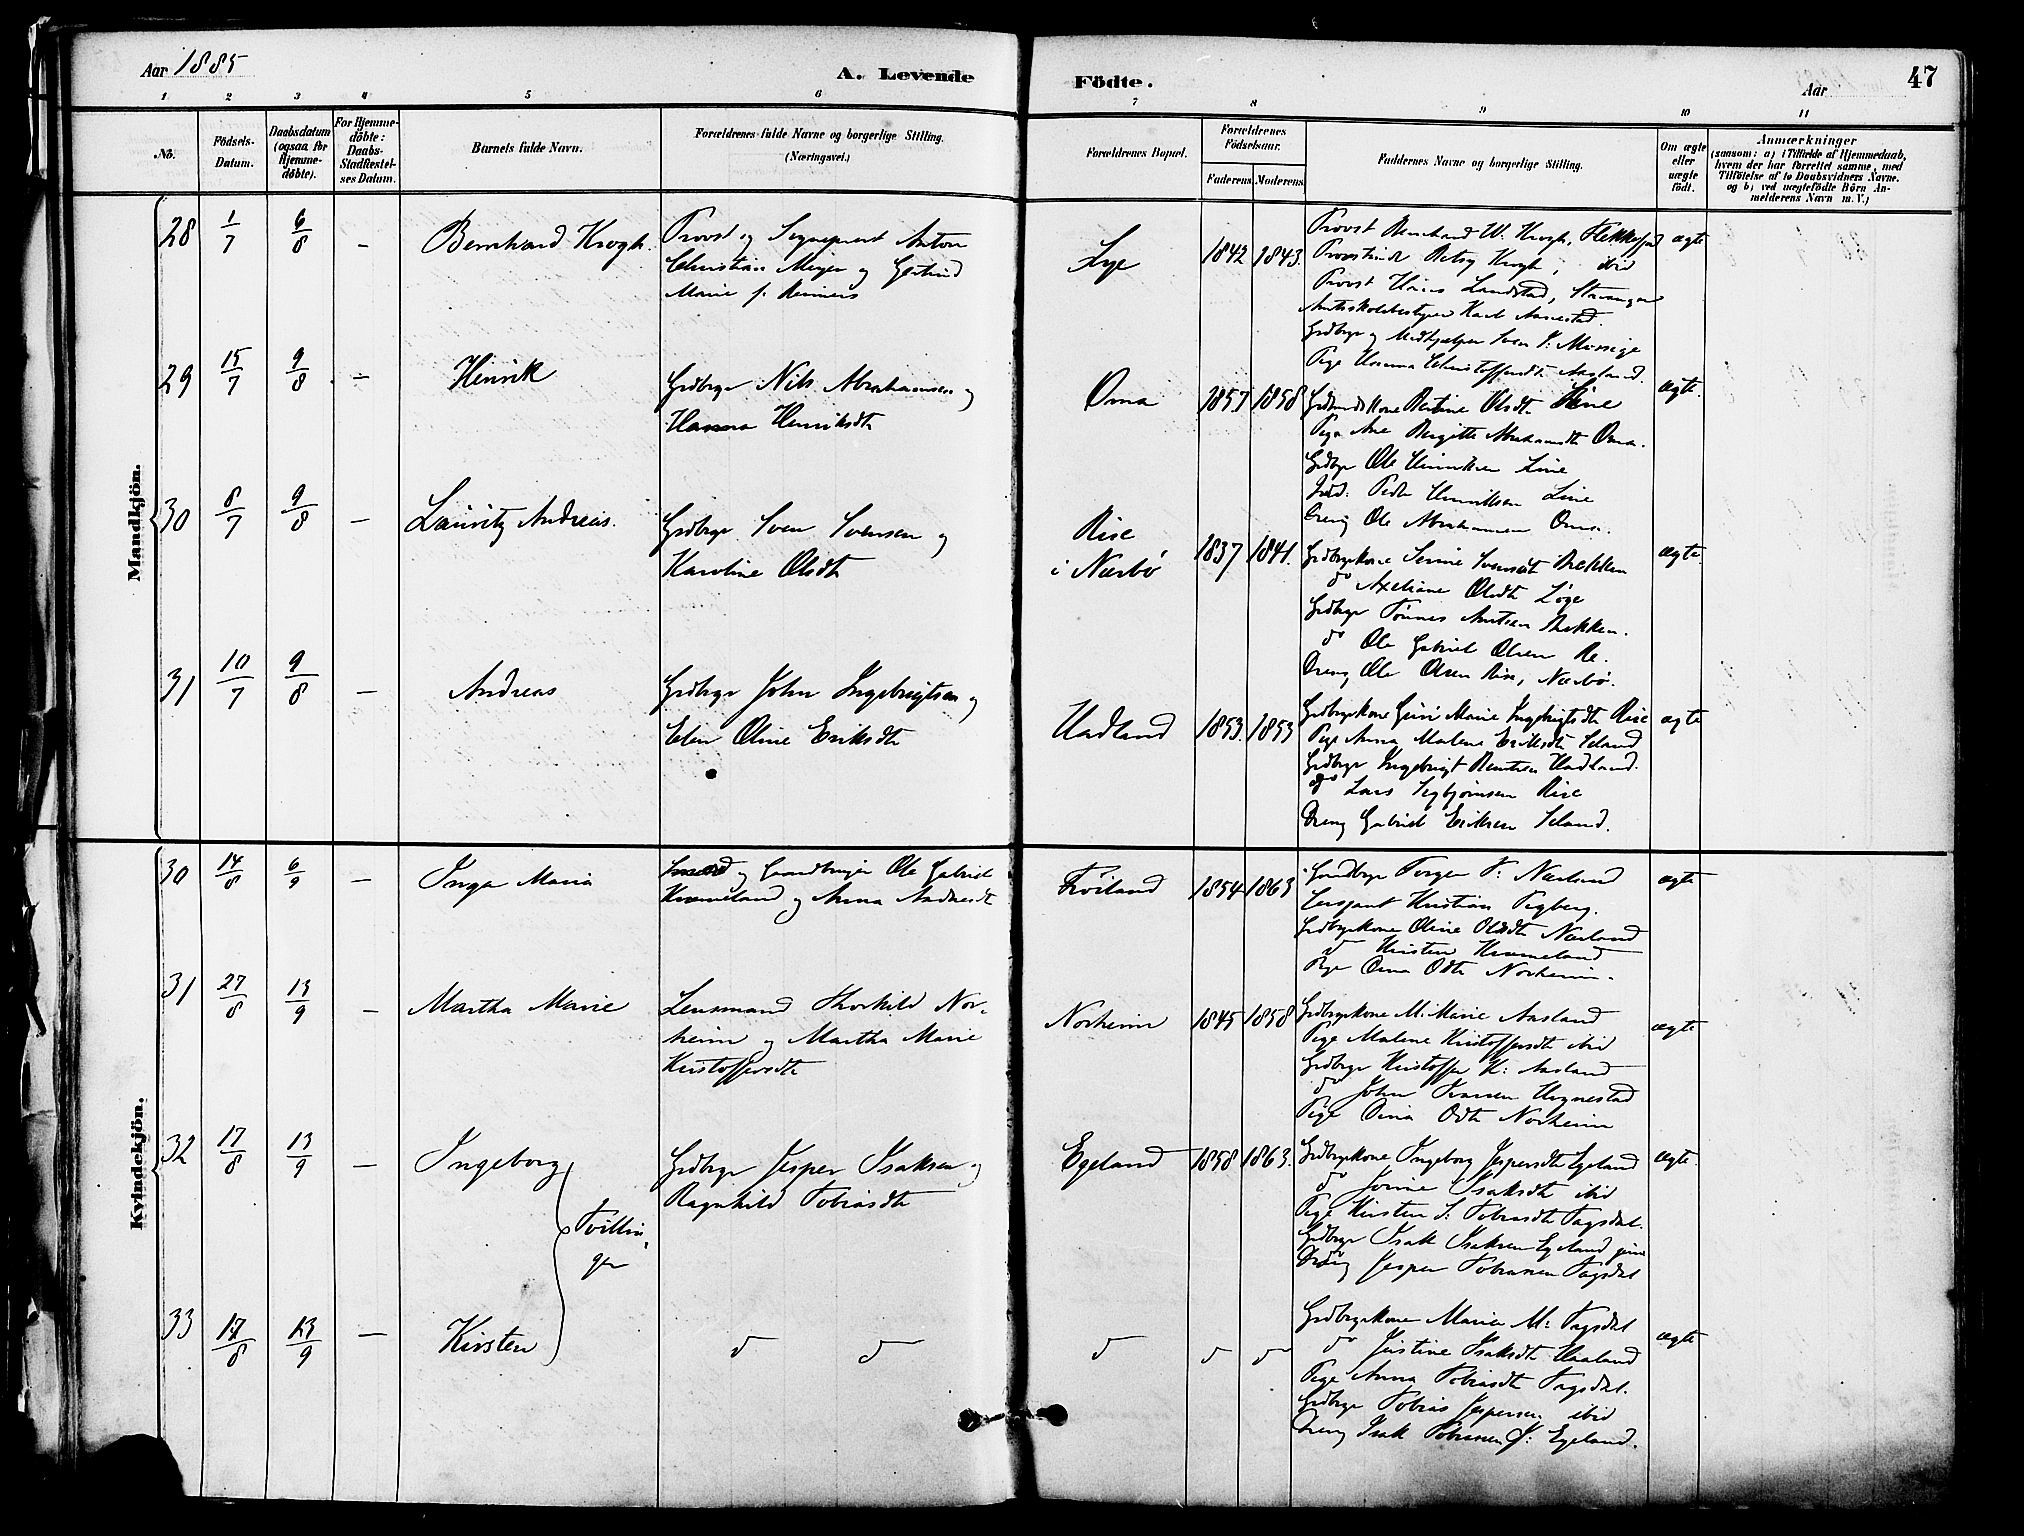 Aar 1885
A. Levende
Födte.
Aar
47
1 2 3 4 5 6 7 8 9 10 11
No.
Födsels-Datum.
Daabsdatum (ogsaa for Hjemmedöbte).
For Hjemmedöbte: Daabs-Stadfæstelses Datum.
Barnets fulde Navn.
Forældrenes fulde Navne og borgerlige Stilling.
(Næringsvei.)
Forældrenes Bopæl.
Forældrenes Födselsaar.
Faderens Moderens
Faddernes Navne og borgerlige Stilling.
Om ægte eller uægte födt.
Anmærkninger
(saasom: a) i Tilfælde af Hjemmedaab, hvem der har forrettet samme, med Tilföielse af to Daabsvidners Navne, og b) ved uægtefödte Börn Anmelderens Navn m. V.)
Mandkjön.
28 1/7 6/8 – Bernhard Krogh. Provst og Sogneprest Anton
Christian Meyer og Gertrud
Marie f. Reimers
Lye 1842 1843.
Provst Bernhard W. Krogh, Flekkefjord
Provstinde Betsy Krogh, ibid
Provst Hans Landstad, Stavanger
Amtsskolebestyrer Karl Aarrestad.
Grdbrgr og Medhjælper Sven P. Mossige
Pige Hanna Christoffersdt Aasland.
ægte
29 15/7 9/8 – Hinrik Grdbrgr Nils Abrahamsen og
Hanna Henriksdt
Oma 1857 1858
Grdmandskone Bertine Olsdt Line
Pige Ane Birgitte Abrahamsdt Oma.
Grdbgr Ole Hinriksen Line
Inds. Peder Hinriksen Line
Dreng Ole Abrahamsen Oma.
ægte.
30 8/7 9/8 – Lauritz Andreas. Grdbrgr Sven Svensen og
Karoline Olsdt
Rise
i Nærbø 1837 1841.
Grdbrgrkone Serine Svensdt Bakken
do Axeliane Olsdt Løge
Grdbrgr Tønnes Bakken.
do Ole Gabriel Olsen Re.
Dreng Ole Olsen Rise, Nærbø.
ægte.
31 10/7 9/8 – Andreas Grdbrgr John Ingebrigtsen og
Elen Oline Eriksdt
Hadland 1853. 1853
Grdbrgrkone Guri Marie Ingebrigtsdt Rise
Pige Anna Malene Eriksdt Seland
Grdbrgr Ingebrigt Hadland.
do Lars Sigbjørnsen Rise
Dreng Gabriel Eriksen Seland.
ægte
Kvindekjön.
30 14/8 6/9 – Inga Maria Smed og Gaardbruger Ole Gabriel
Kvameland og Anna Andersdt
Frøiland 1854 1863
Gaardbrgr Torger T. Nærland
Sersjant Kristian Tegberg.
Grdbrgrkone Oline Olsdt Nærland
do Kirsten Kvameland
Pige Oma Odt Norheim.
ægte
31 27/8 13/9 – Martha Marie Lensmand Thorkild Nor-
heim og Martha Marie
Kristoffersdt
Norheim 1845 1858
Grdbrgrkone M. Marie Aasland
Pige Malene Kristoffersdt ibid
Grdbrgr Kristoffer K. Aasland
do John Ivarsen Hognestad
Pige Oma Odt Norheim
ægte
32 17/8 13/9 – Ingeborg Grdbrgr Jesper Isaksen og
Ragnhild Tobiasdt
Tvillin-
ger
Egeland 1858 1863.
Grdbrgrkone Ingeborg Jespersdt Egeland
do Jorine Isaksdt ibid
Pige Kirsten S. Tobiasdt Tagsdal.
Grdbrgr Isak Isaksen Egeland
Dreng Jesper Tobiassen Tagsdal
ægte.
33 17/8 13/9 – Kirsten do do
do do do
Grdbrgrkone Maria M. Tagsdal
do Justine Isaksdt Haaland
Pige Anna Tobiasdt Tagsdal.
Grdbrgr Tobias Jespersen ibid
Dreng Isak Tobiassen J. Egeland.
ægte